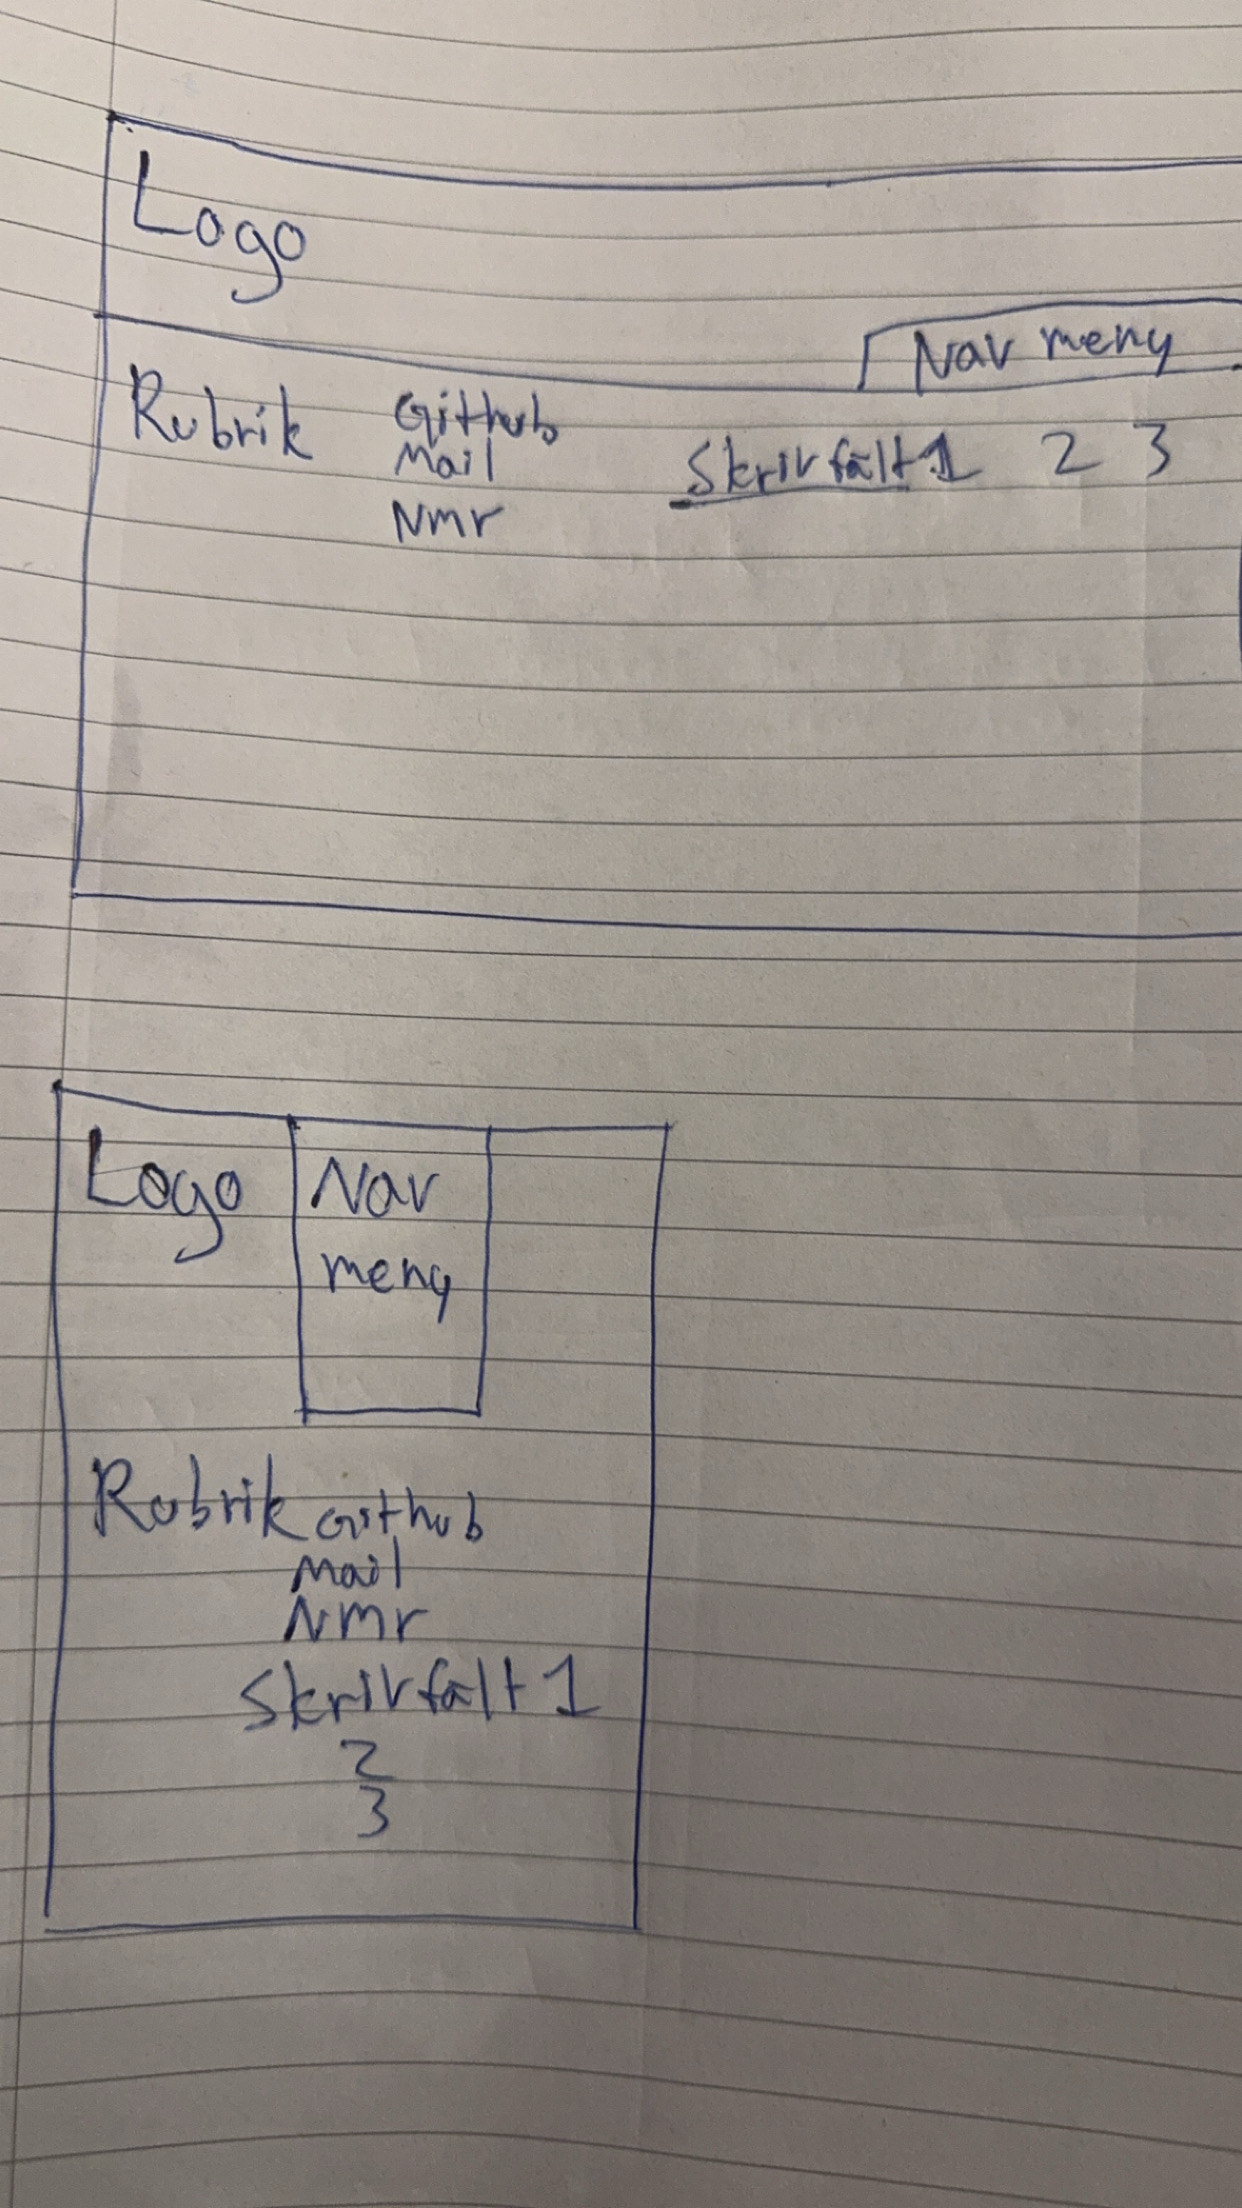 Logo
Nav meny
Rubrik
Github
Mail
Nmr
Skrivfält 1 2 3
Logo
Nav
meny
Rubrik Github
Mail
Nmr
Skrivfält 1
2
3